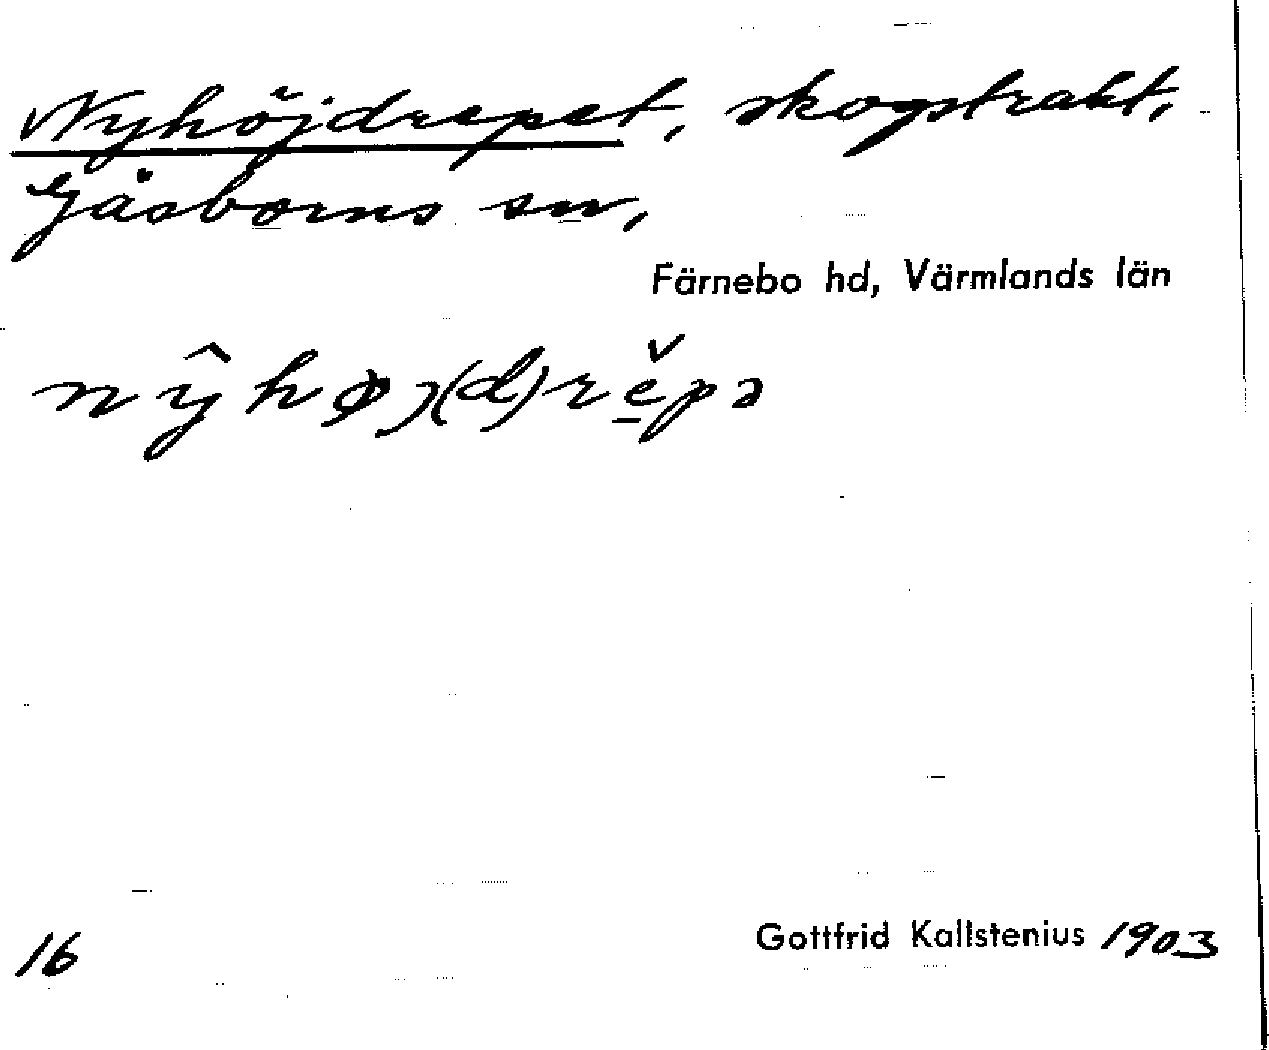 Nyhöjdrepet, skogstrakt,
Gåsborns sn,
Färnebo hd, Värmlands län
nŷhøj(d)rě̱pə
16
Gottfrid Kallstenius 1903